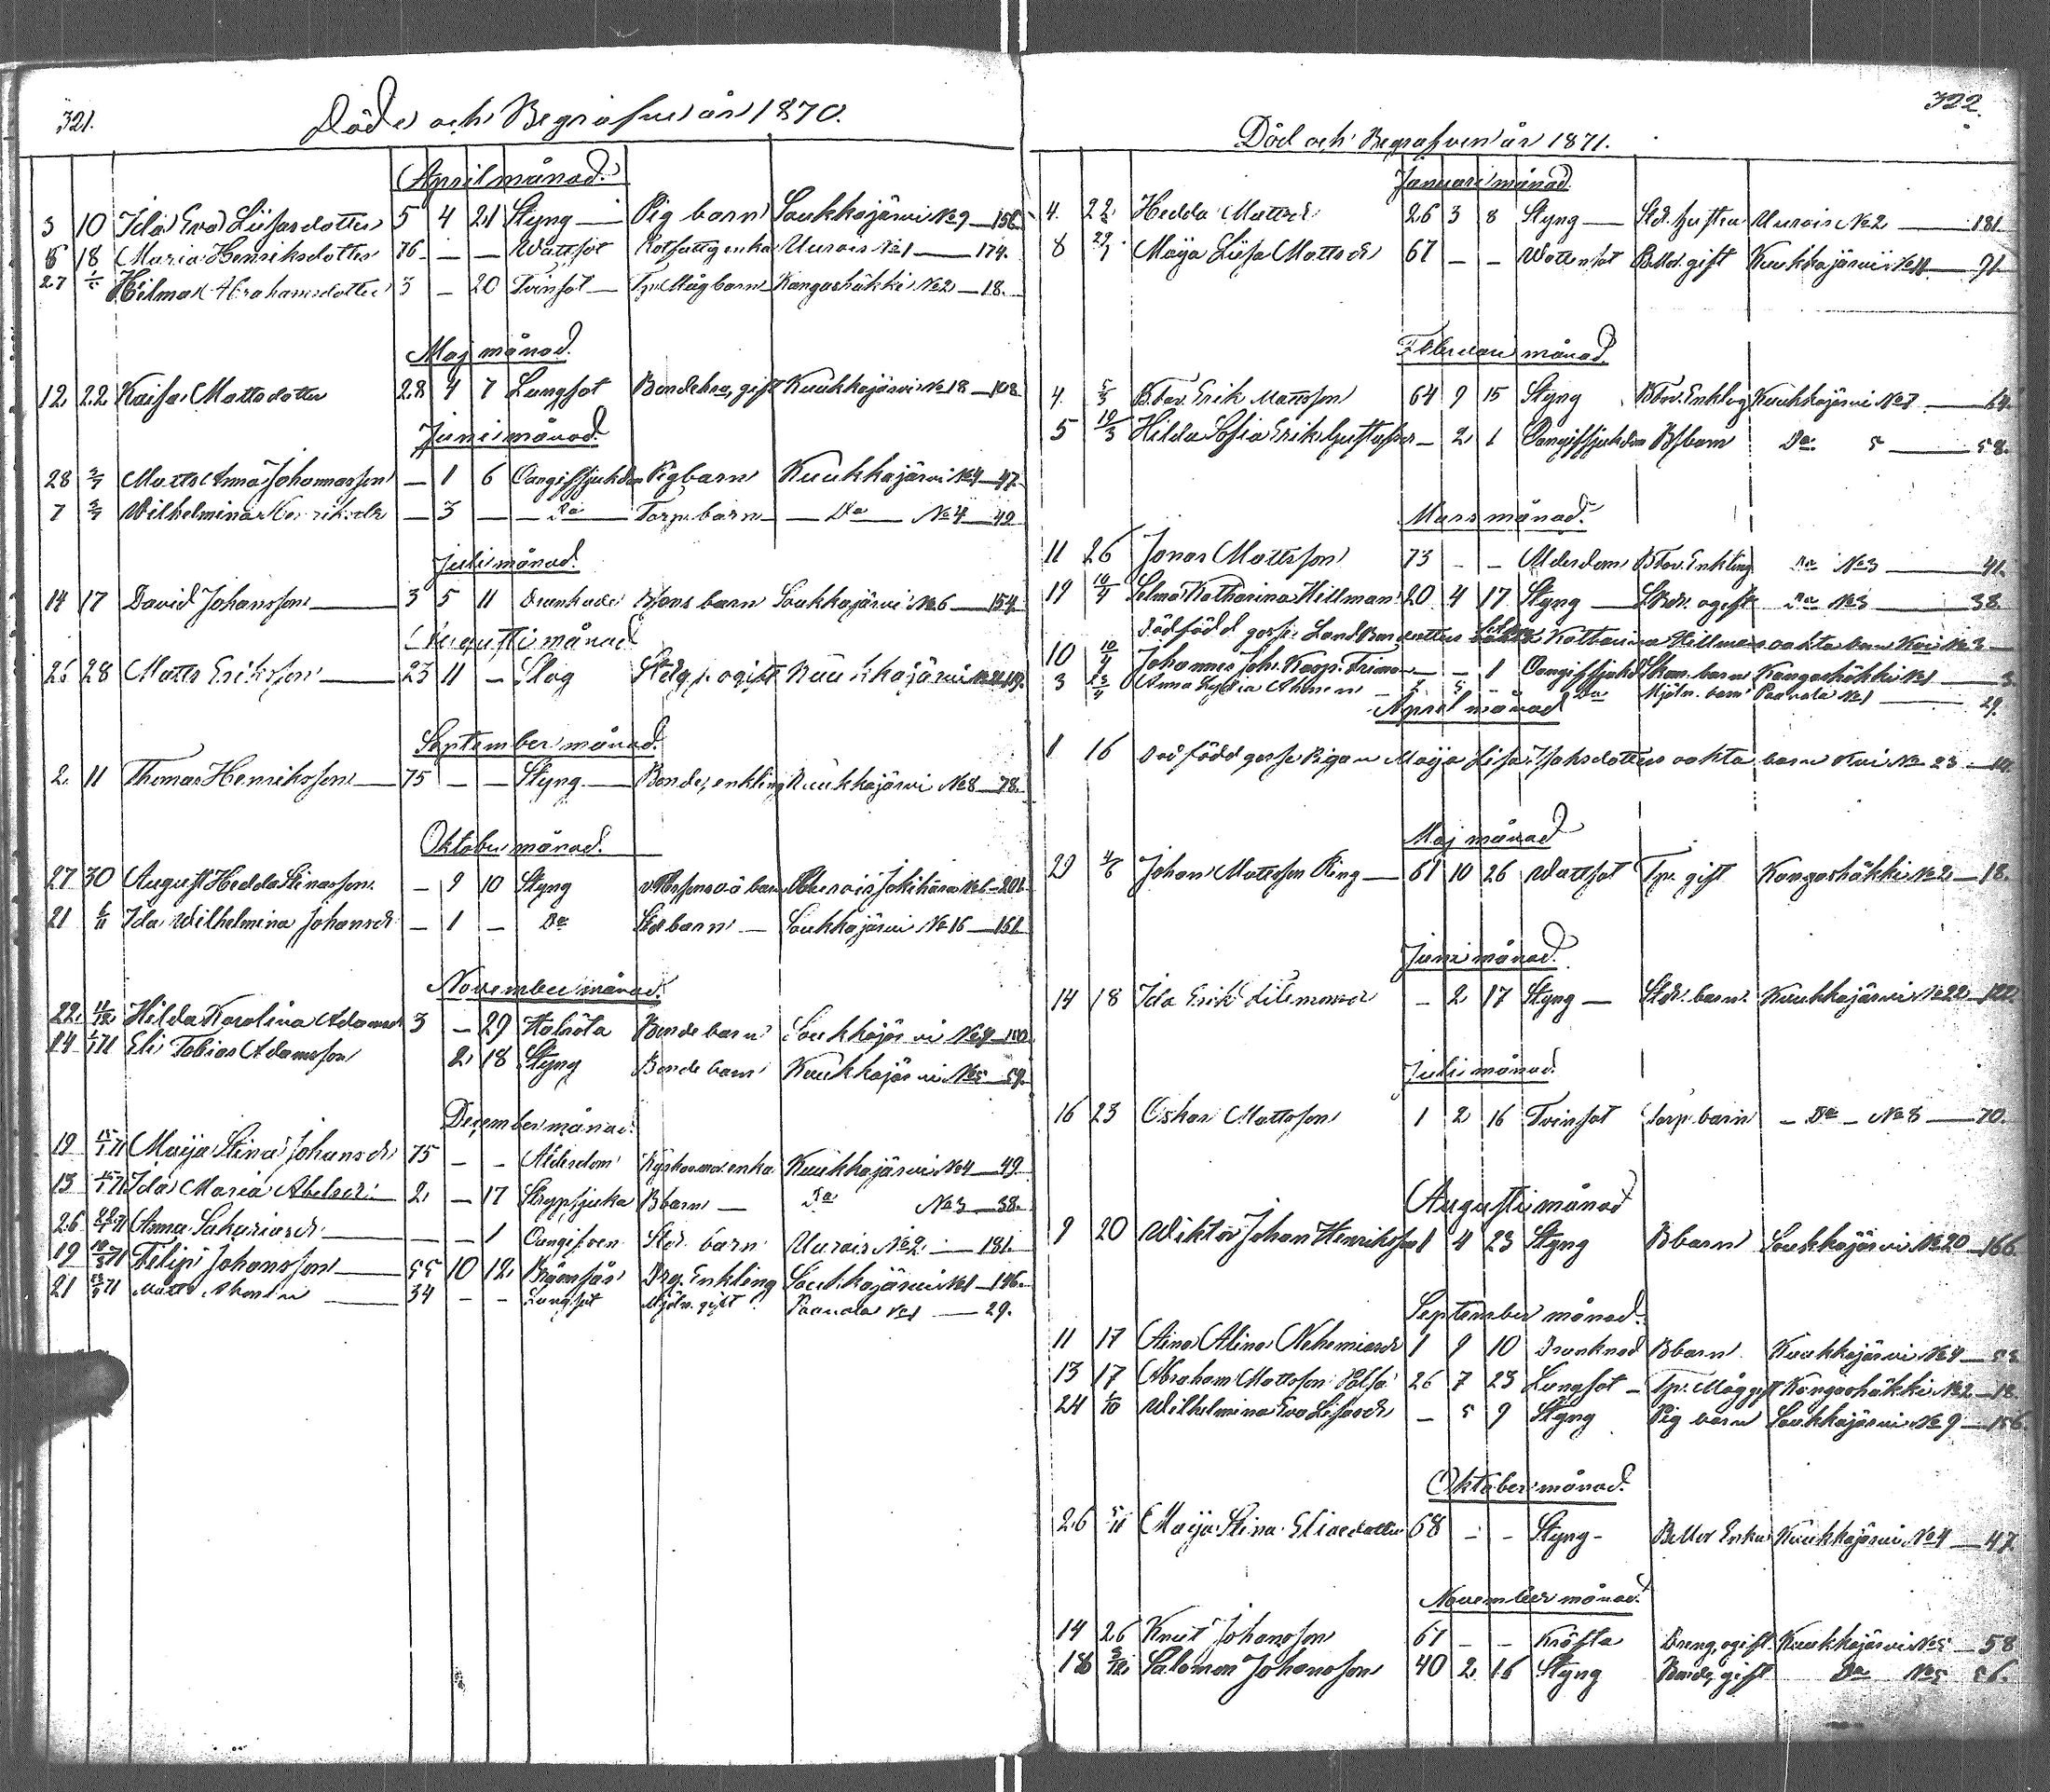 321.
Döde och Begrafne år 1870.
April månad.
3 10 Ida Eva Liisasdotter 5 4 21 Styng — Pig barn Soukkajärvi No 9 — 156.
6 18 Maria Henriksdotter 76 — — Wattsot Rotfattig enka Uurais No 1 — 174.
27 1/5 Hilma Abrahamsdotter 3 — 20 Tvinsot — Tp. Måg barn Kangashäkki No 2 — 18.
Maj månad.
12 22 Kaisa Mattsdotter 28 4 7 Lungsot gift Kuukkajärvi No 18 — 108.
Juni månad.
28 3/7 Matts Anna Johannasson — 1 6 Oangifsjukdom Pigbarn Kuukkajärvi No 4 — 47.
7 3/7 Wilhelmina Henriksdr — 3 — — Do — Torp. barn — Do — No 4 — 49
Juli månad.
14 17 David Johansson — 3 5 11 Drunknade Bsons barn Soukkajärvi No 6 — 154.
Augusti månad
26 28 Matts Eriksson — 23 11 — Slag ogift Kuukkajärvi
September månad.
2 11 Thomas Henriksson — 75 — — Styng — Bonde, enkling Kuukkajärvi No 8 — 78.
Oktober månad.
27 30 August Hedda Stinasson — 9 10 Styng Uurais Jokihaara
21 6/11 Ida Wilhelmina Johansdr — 1 — Do Stdr barn — Soukkajärvi No 16 — 161.
November månad.
22 11/12 Hilda Karolina Adamsdr 3 — 29 Halsröta Bonde barn Soukkajärvi No 4
14 Eli Tobias Adamsson 2 18 Styng Bonde barn Kuukkajärvi No 5 — 59.
December månad.
19 15/1 71 Maija Stina Johansdr 75 — — Ålderdom enka Kuukkajärvi No 4 — 49
13 15/1 71 Ida Maria Abelsdr — 2 — 17 Strypsjuka Bbarn — Do No 3 — 38.
26 71 Anna Sakariasdr — — — 1 Oangifven Stdr. barn Uurais No 2 — 181.
19 71 Felip Johansson — 55 10 12 Drg. Enkling Soukkajärvi No 1 — 146.
21 71 Matts Ahonen — 34 — — Lungsot Mjöln. gift Paanala No 1 — 29.
322.
Död och Begrafven år 1871.
Januari månad.
4 22 Hedda Mattsdr 26 3 8 Styng — Std. hustru Uurais No 2 — 181.
8 29/1 Maja Liisa Mattsdr 67 — — Wattensot gift Kuukkajärvi — 91
Februari månad.
4 5/3 B. Fav. Erik Mattsson 64 9 15 Styng B Fav. Enkling Kuukkajärvi No 7 — 64.
5 19/3 Hilda Sofia Erik Gustafsdr — 2 1 Oangifsjukdom Bbarn Do 5 — 58.
Mars månad.
11 26 Jonas Mattsson 73 — — Ålderdom B Fav. Enkling Do No 3 — 41.
19 10/4 Selma Katharina Hillman 20 4 17 Styng — ogift Do No 3 — 38.
10 10/4 Dödfödd gosse Katharina Hillmans oäkta barn No 3 —
Johannes Joh. Kasp. — — 1 Oangifsjukd. barn Kangashäkki No 1 — 3.
3 23/4 Anna Lydia Ahonen — Do Mjöln. barn Paanala No 1 — 29.
April månad
1 16 Död född gosse Pigan Maija Lisa Isaksdotters oäkta barn No 23 — 14.
Maj månad
29 4/6 Johan Mattsson Ring — 61 10 26 Wattsot Tp. gift Kangashäkki No 2 — 18.
Juni månad.
14 18 Ida Erik — 2 17 Styng — Stdr. barn. Kuukkajärvi No 22 — 122.
Juli månad.
16 23 Oskar Mattsson 1 2 16 Tvinsot Torp. barn — Do — No 8 — 70.
Augusti månad
9 20 Wiktor Johan Henriksson 1 4 23 Styng Bbarn Soukkajärvi No 20 — 166.
September månad.
11 17 Aina Alina Nehemiasdr 1 9 10 Drunknad Bbarn Kuukkajärvi No 4
13 17 Abraham Mattsson 26 7 23 Lungsot — Tp. Måg gift Kangashäkki No 2 — 18.
24 1/10 Wilhelmina Eva Lisasdr — 5 9 Styng Pig barn Soukkajärvi No 9 — 156.
Oktober månad.
26 5/11 Maija Stina Eliasdotter 68 — — Styng — Enka Kuukkajärvi No 4 — 47.
November månad.
14 26 Knut Johansson 61 — — Kräfta Dreng, ogift Kuukkajärvi No 5 — 58
18 3/12 Salomon Johansson 40 2 16 Styng Bonde, gift Do No 5 56.